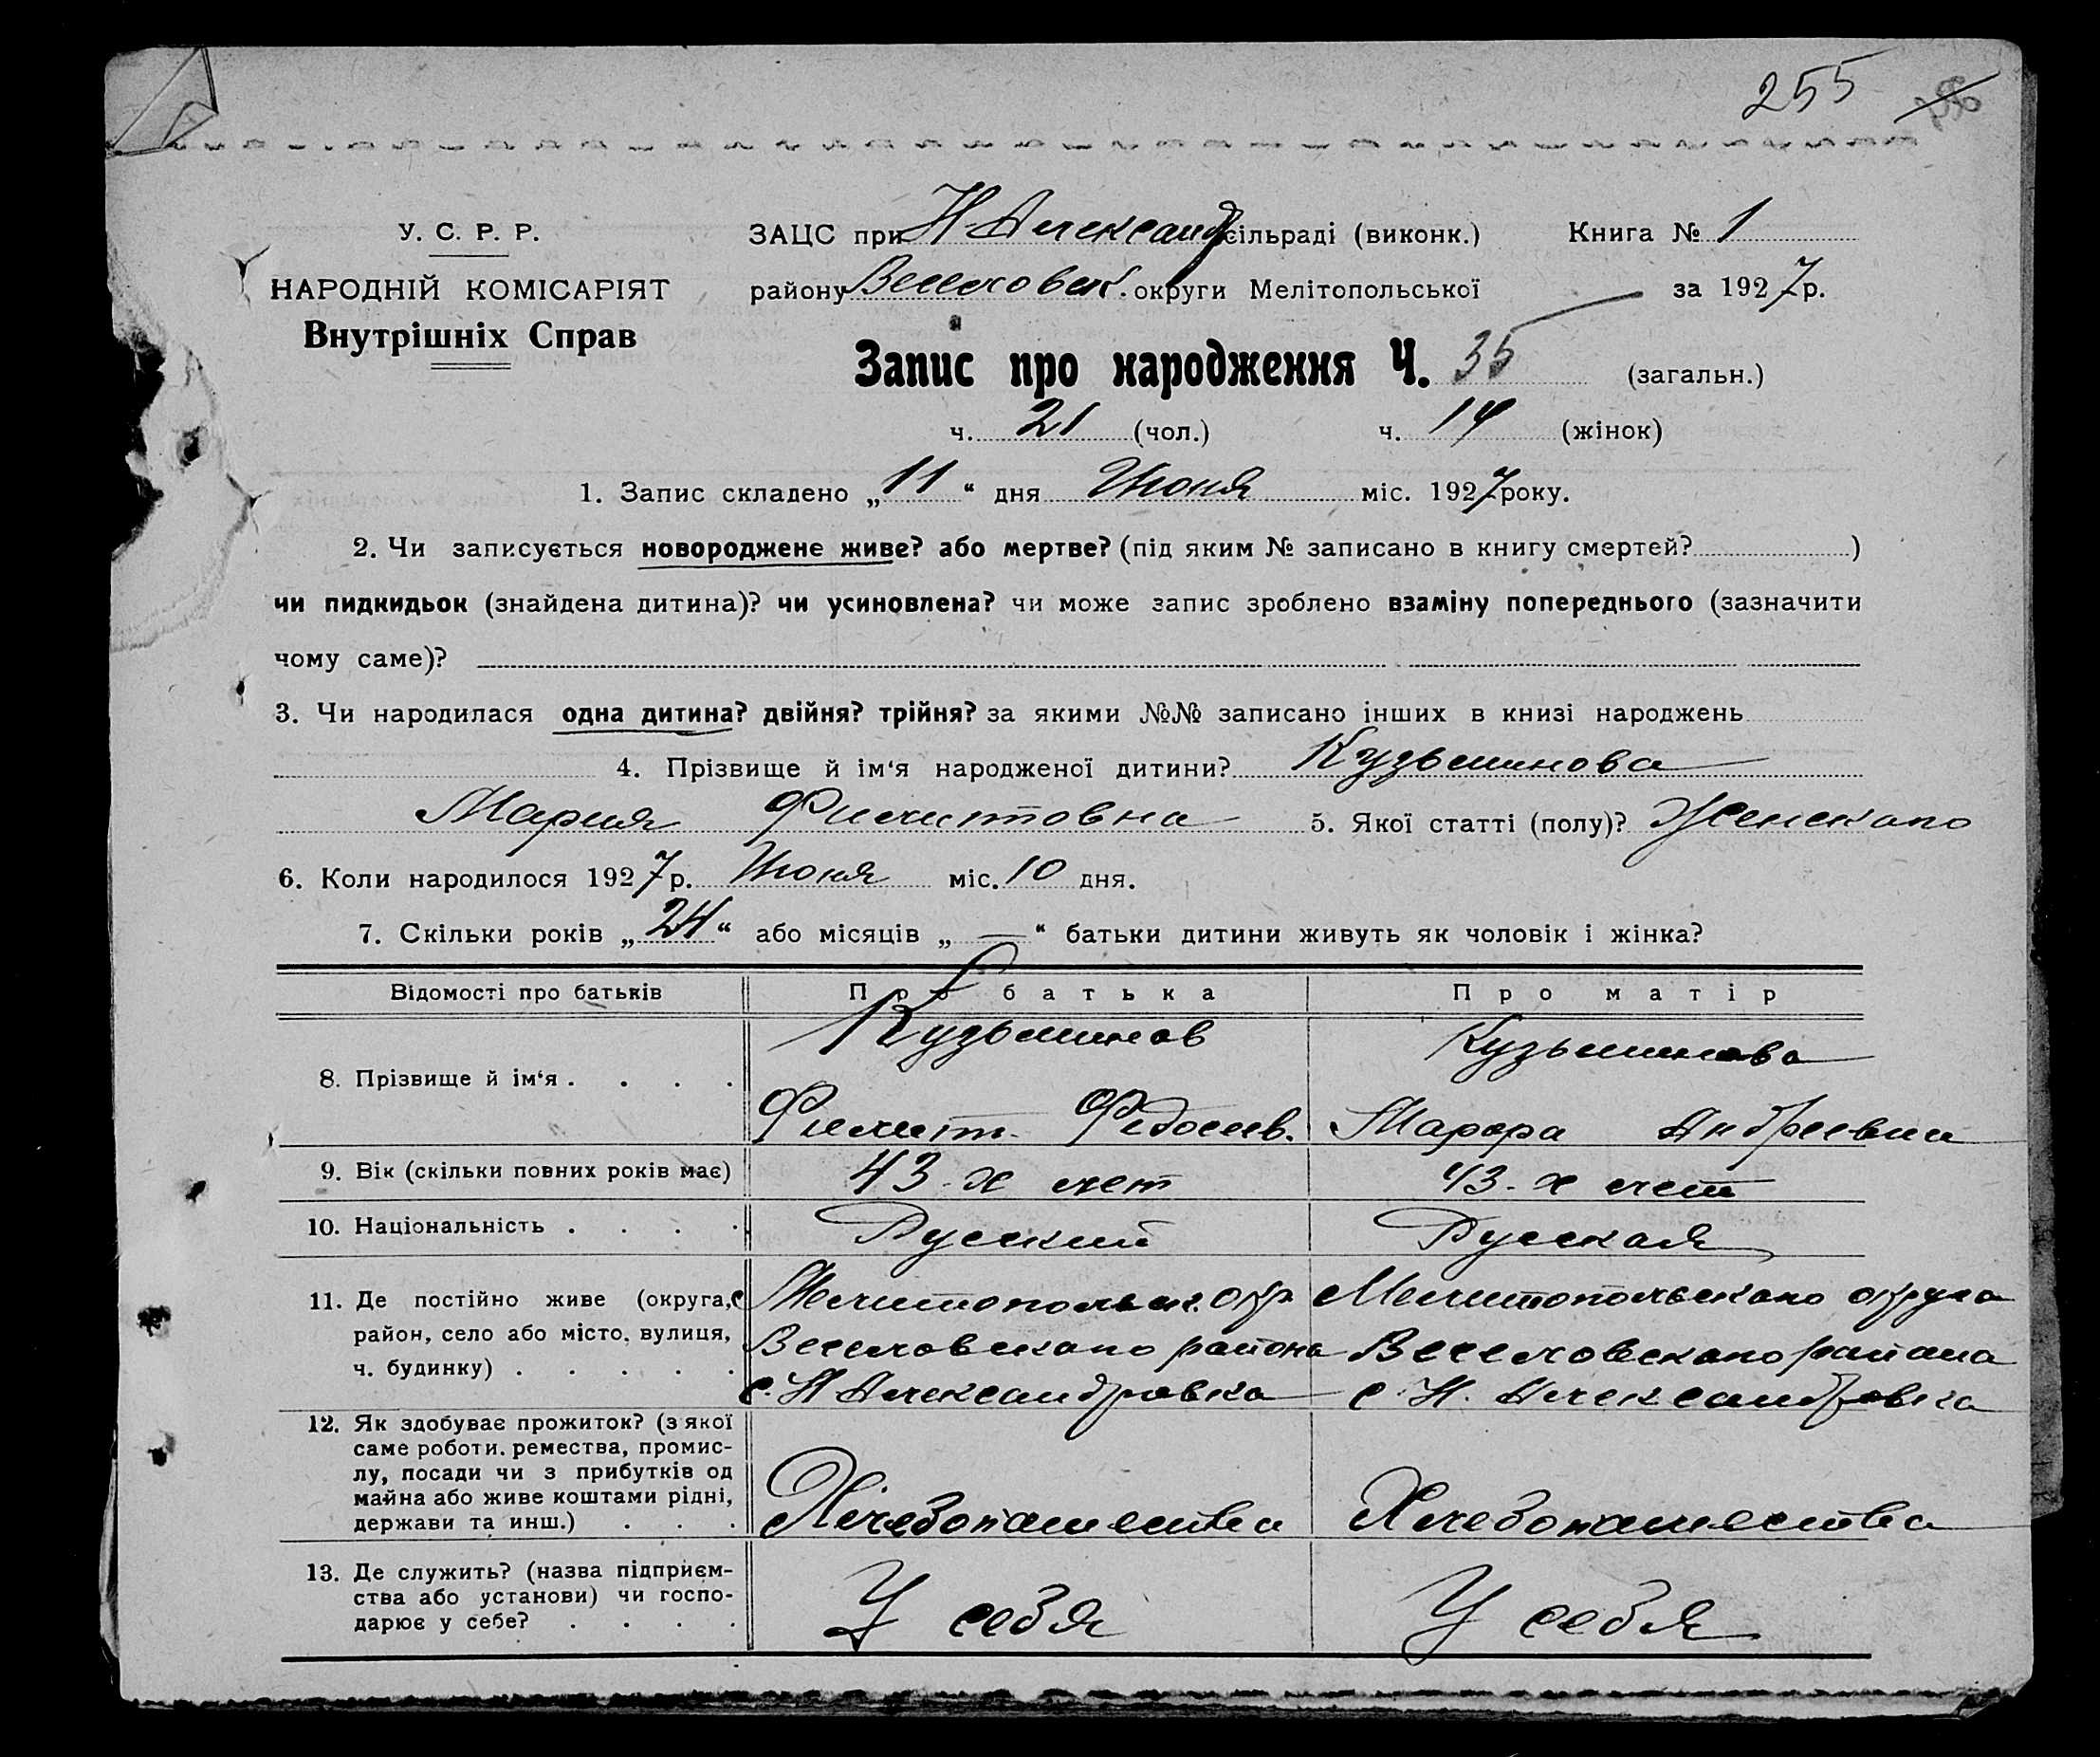 255
У. С. Р. Р.
НАРОДНІЙ КОМІСАРІЯТ
Внутрішніх Справ
ЗАЦС при Н Александ сільраді (виконк.) Книга № 1
району Веселовск. округи Мелітопольської за 1927 р.
Запис про народження Ч. 35 (загальн.)
ч. 21 (чол.) ч. 14 (жінок)
1. Запис складено „11“ дня Июня міс. 1927 року.
2. Чи записується новороджене живе? або мертве? (під яким № записано в книгу смертей? )
чи пидкидьок (знайдена дитина)? чи усиновлена? чи може запис зроблено взаміну попереднього (зазначити
чому саме)?
3. Чи народилася одна дитина? двійня? трійня? за якими №№ записано інших в книзі народжень
4. Прізвище й ім‘я народженої дитини? Кузьминова
Мария Филитовна 5. Якої статті (полу)? Женскаго
6. Коли народилося 1927 р. Июня міс. 10 дня.
7. Скільки років „24“ або місяців „—“ батьки дитини живуть як чоловік і жінка?
Відомості про батьків Про батька Про матір
8. Прізвище й ім‘я . . . . Кузьминов Кузьминова
Филит. Федосеев. Марфа Андреевна
9. Вік (скільки повних років має) 43-х лет 43-х лет
10. Національність . . . . Русский Русская
11. Де постійно живе (округа, Мелитопольск. окр Мелитопольскаго округа
район, село або місто, вулиця, Веселовскаго района Веселовскаго района
ч. будинку) . . . . . с. Н Александровка с. Н. Александровка
12. Як здобуває прожиток? (з якої
саме роботи. ремества, промис-
лу, посади чи з прибутків од
майна або живе коштами рідні,
держави та инш.) . . . Хлебопашества Хлебопашества
13. Де служить? (назва підприєм-
ства або установи) чи госпо-
дарює у себе? . . . . У себя У себя